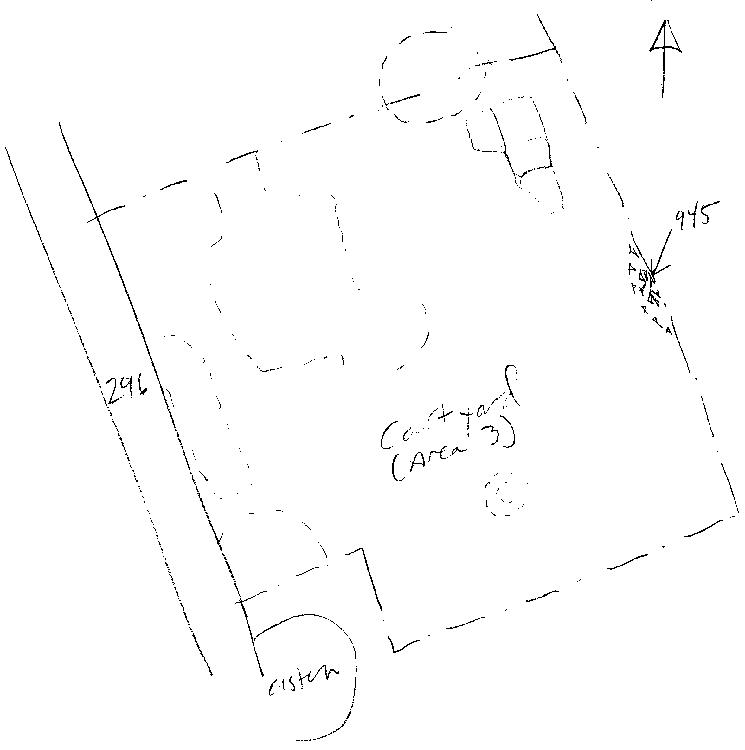 945
296
Courtyard
(Area 3)
cistern